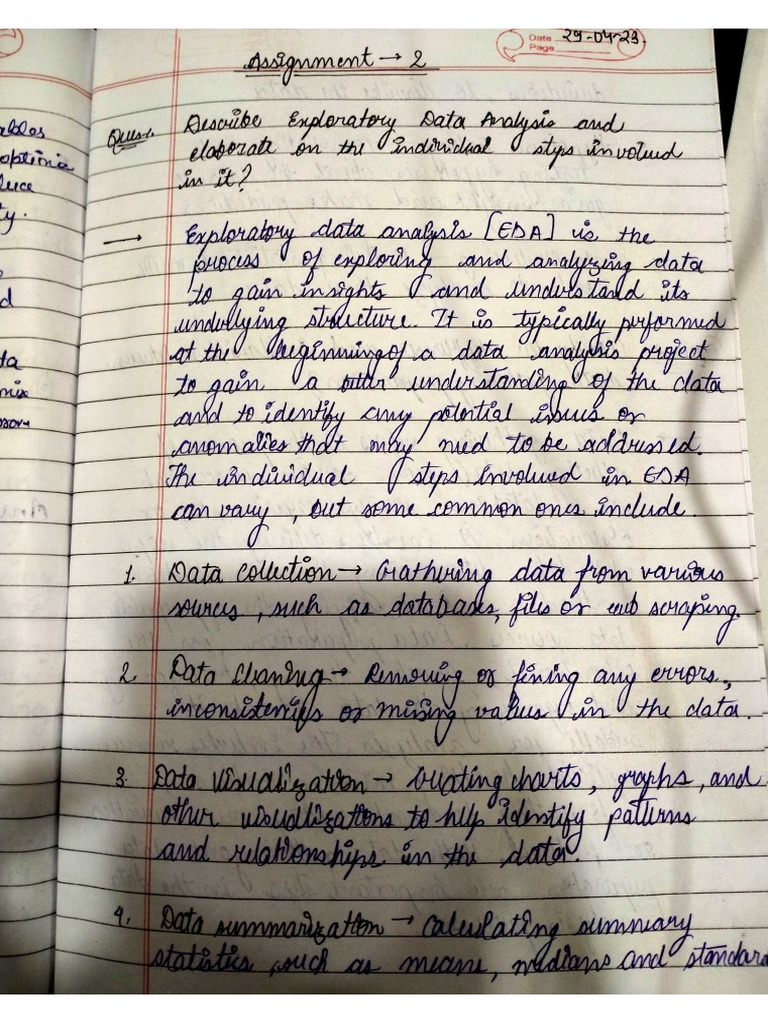 Date 29-04-23.
Page
Assignment → 2
Ques-1. Describe Exploratory Data Analysis and
elaborate on the individual steps involved
in it?
→ Exploratory data analysis [EDA] is the
process of exploring and analyzing data
to gain insights and understand its
underlying structure. It is typically performed
at the beginning of a data analysis project
to gain a better understanding of the data
and to identify any potential issues or
anomalies that may need to be addressed.
The individual steps involved in EDA
can vary, but some common ones include.
1. Data Collection → Gathering data from various
sources, such as databases, files or web scraping.
2. Data Cleaning → Removing or fixing any errors,
inconsistencies or missing values in the data.
3. Data Visualization → Creating charts, graphs, and
other visualizations to help identify patterns
and relationships in the data.
4. Data summarization → Calculating summary
statistics, such as means, medians and standard
ables
optimi
duce
ty.
d
ta
mix